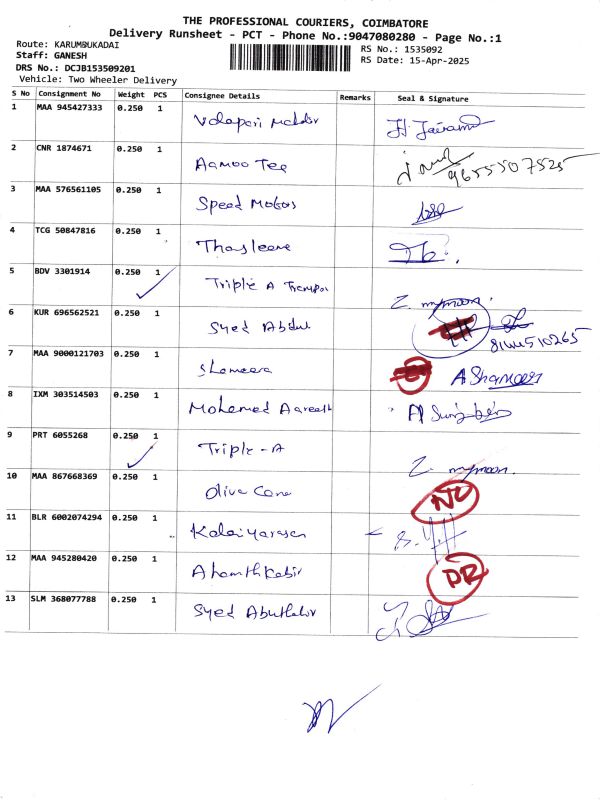 THE PROFESSIONAL COURIERS, COIMBATORE
Delivery Runsheet - PCT - Phone No.:9047080280 - Page No.:1
Route: KARUMBUKADAI
RS No.: 1535092
Staff: GANESH
RS Date: 15-Apr-2025
DRS No.: DCJB153509201
Vehicle: Two Wheeler Delivery
S No Consignment No Weight PCS Consignee Details Remarks Seal & Signature
1 MAA 945427333 0.250 1
2 CNR 1874671 0.250 1 Aamoo Tee
9655507525
3 MAA 576561105 0.250 1 Speed Motors
4 TCG 50847816 0.250 1 Thasleena
5 BDV 3301914 0.250 1 Triple A
6 KUR 696562521 0.250 1 Syed Abdul
7 MAA 9000121703 0.250 1 Shameera A Shameera
8 IXM 303514503 0.250 1 Mohamed
9 PRT 6055268 0.250 1 Triple-A
10 MAA 867668369 0.250 1 Olive Cane NC
11 BLR 6002074294 0.250 1 Kalaiyarasan
12 MAA 945280420 0.250 1 Ahamth Kabir DR
13 SLM 368077788 0.250 1 Syed